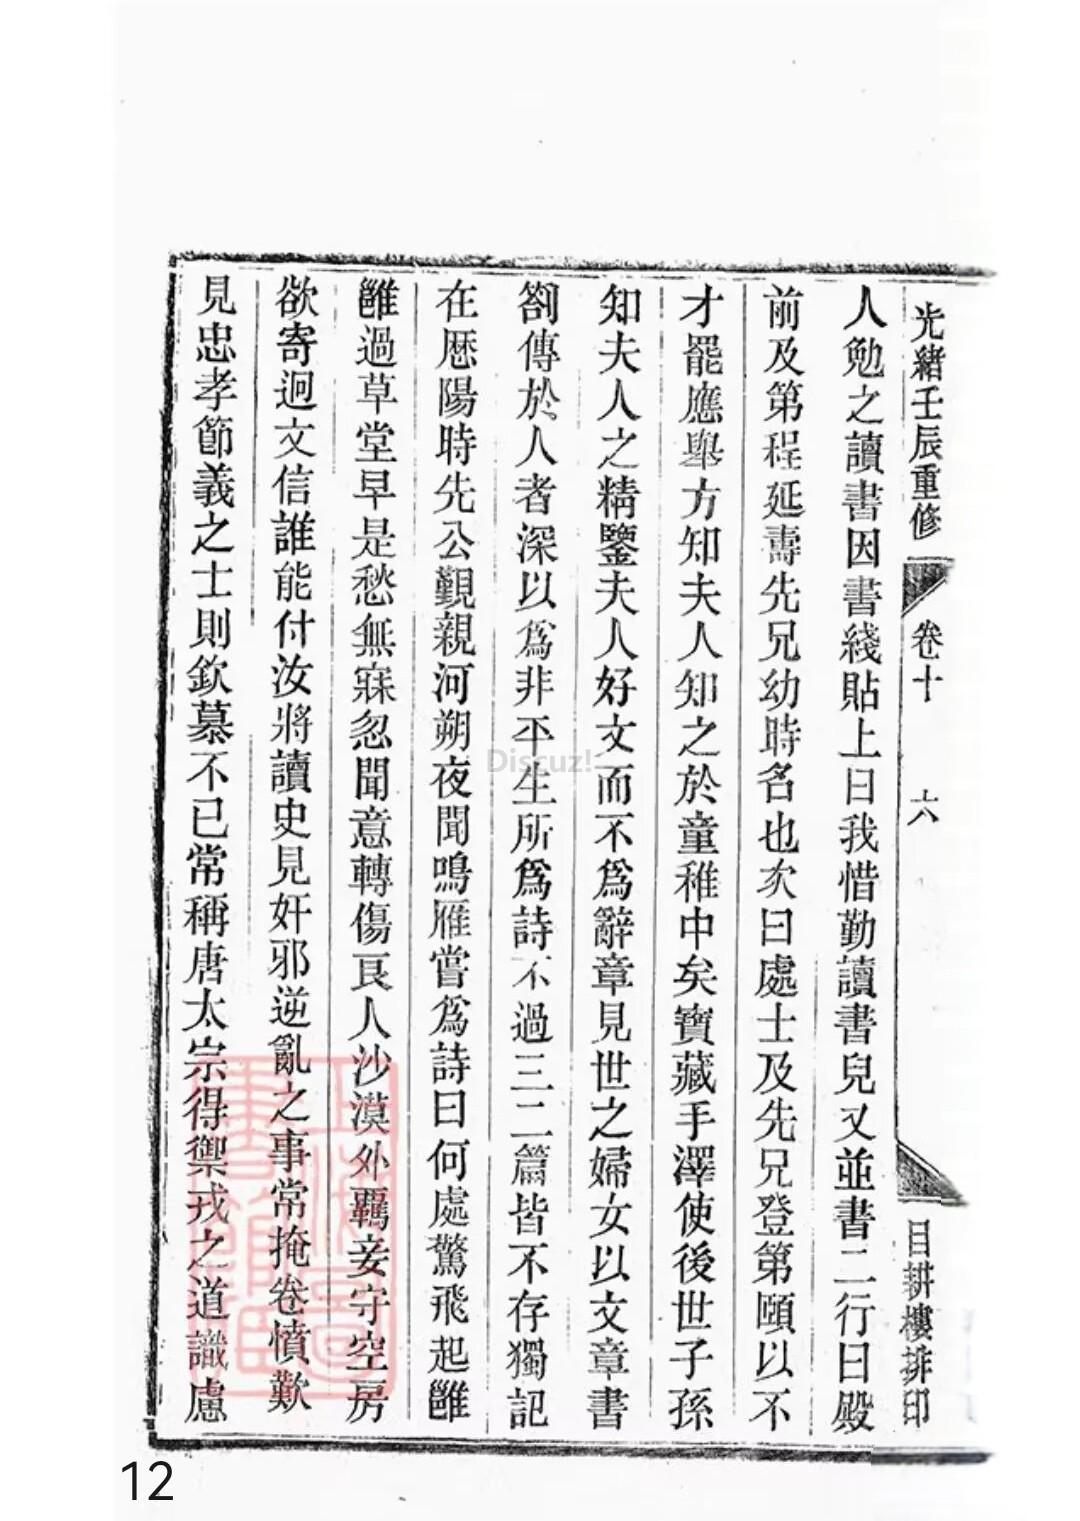 光緒壬辰重修
卷十
六
目耕樓排印
人勉之讀書因書綫貼上曰我惜勤讀書兒又並書二行曰殿
前及第程延壽先兄幼時名也次曰處士及先兄登第頤以不
才罷應舉方知夫人知之於童稚中矣寶藏手澤使後世子孫
知夫人之精鑒夫人好文而不爲辭章見世之婦女以文章書
劄傳於人者深以爲非平生所爲詩不過三二篇皆不存獨記
在歷陽時先公覲親河朔夜聞鳴雁嘗爲詩曰何處驚飛起雝
雝過草堂早是愁無寐忽聞意轉傷良人沙漠外羈妾守空房
欲寄迥文信誰能付汝將讀史見奸邪逆亂之事常掩卷憤歎
見忠孝節義之士則欽慕不已常稱唐太宗得禦戎之道識慮
Discuz!
12